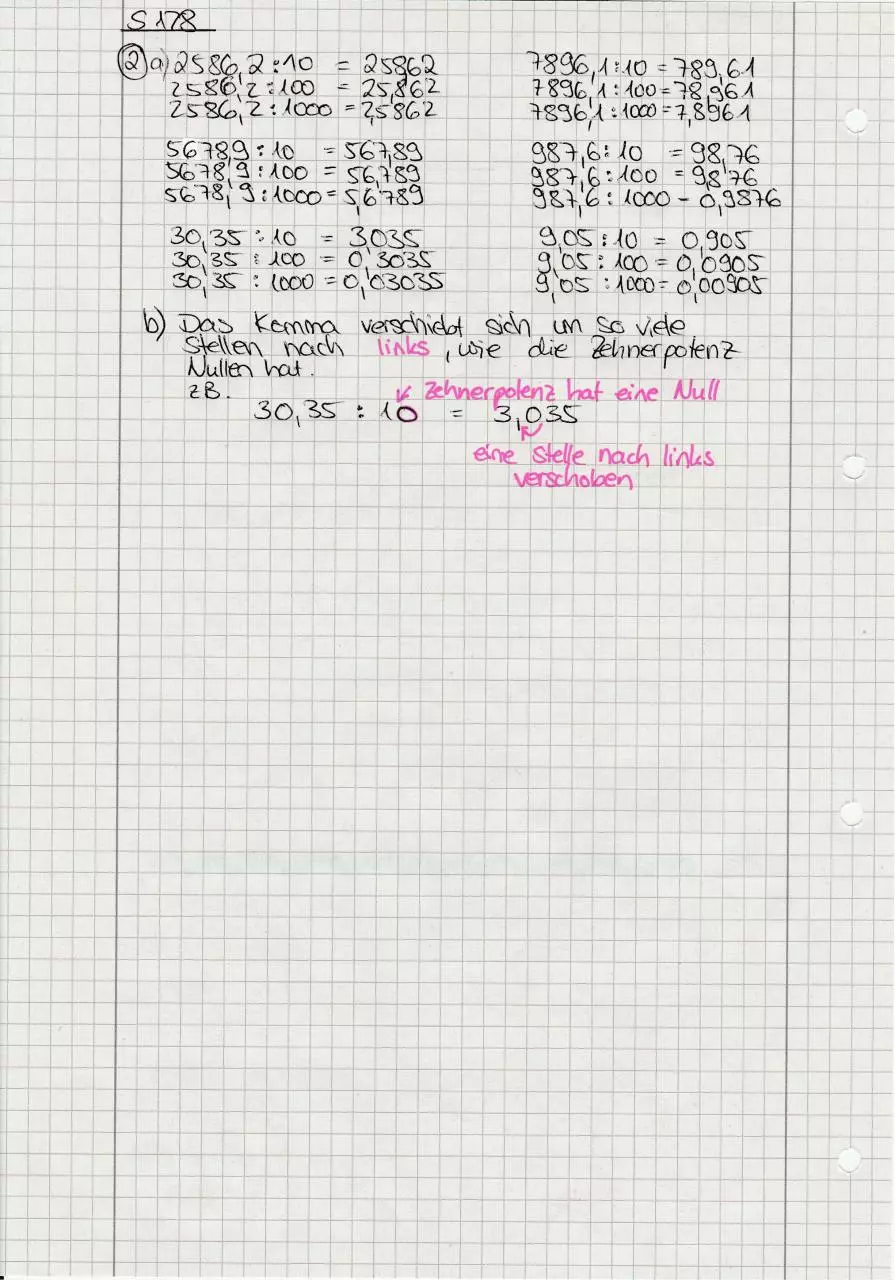 S 178
② a) 2586,2 : 10 = 258,62 7896,1 : 10 = 789,61
2586,2 : 100 = 25,862 7896,1 : 100 = 78,961
2586,2 : 1000 = 2,5862 7896,1 : 1000 = 7,8961
5678,9 : 10 = 567,89 987,6 : 10 = 98,76
5678,9 : 100 = 56,789 987,6 : 100 = 9,876
5678,9 : 1000 = 5,6789 987,6 : 1000 - 0,9876
30,35 : 10 = 3,035 9,05 : 10 = 0,905
30,35 : 100 = 0,3035 9,05 : 100 = 0,0905
30,35 : 1000 = 0,03035 9,05 : 1000 = 0,00905
b) Das Komma verschiebt sich um so viele
Stellen nach links, wie die Zehnerpotenz
Nullen hat.
zB. Zehnerpotenz hat eine Null
30,35 : 10 = 3,035
eine Stelle nach links
verschoben